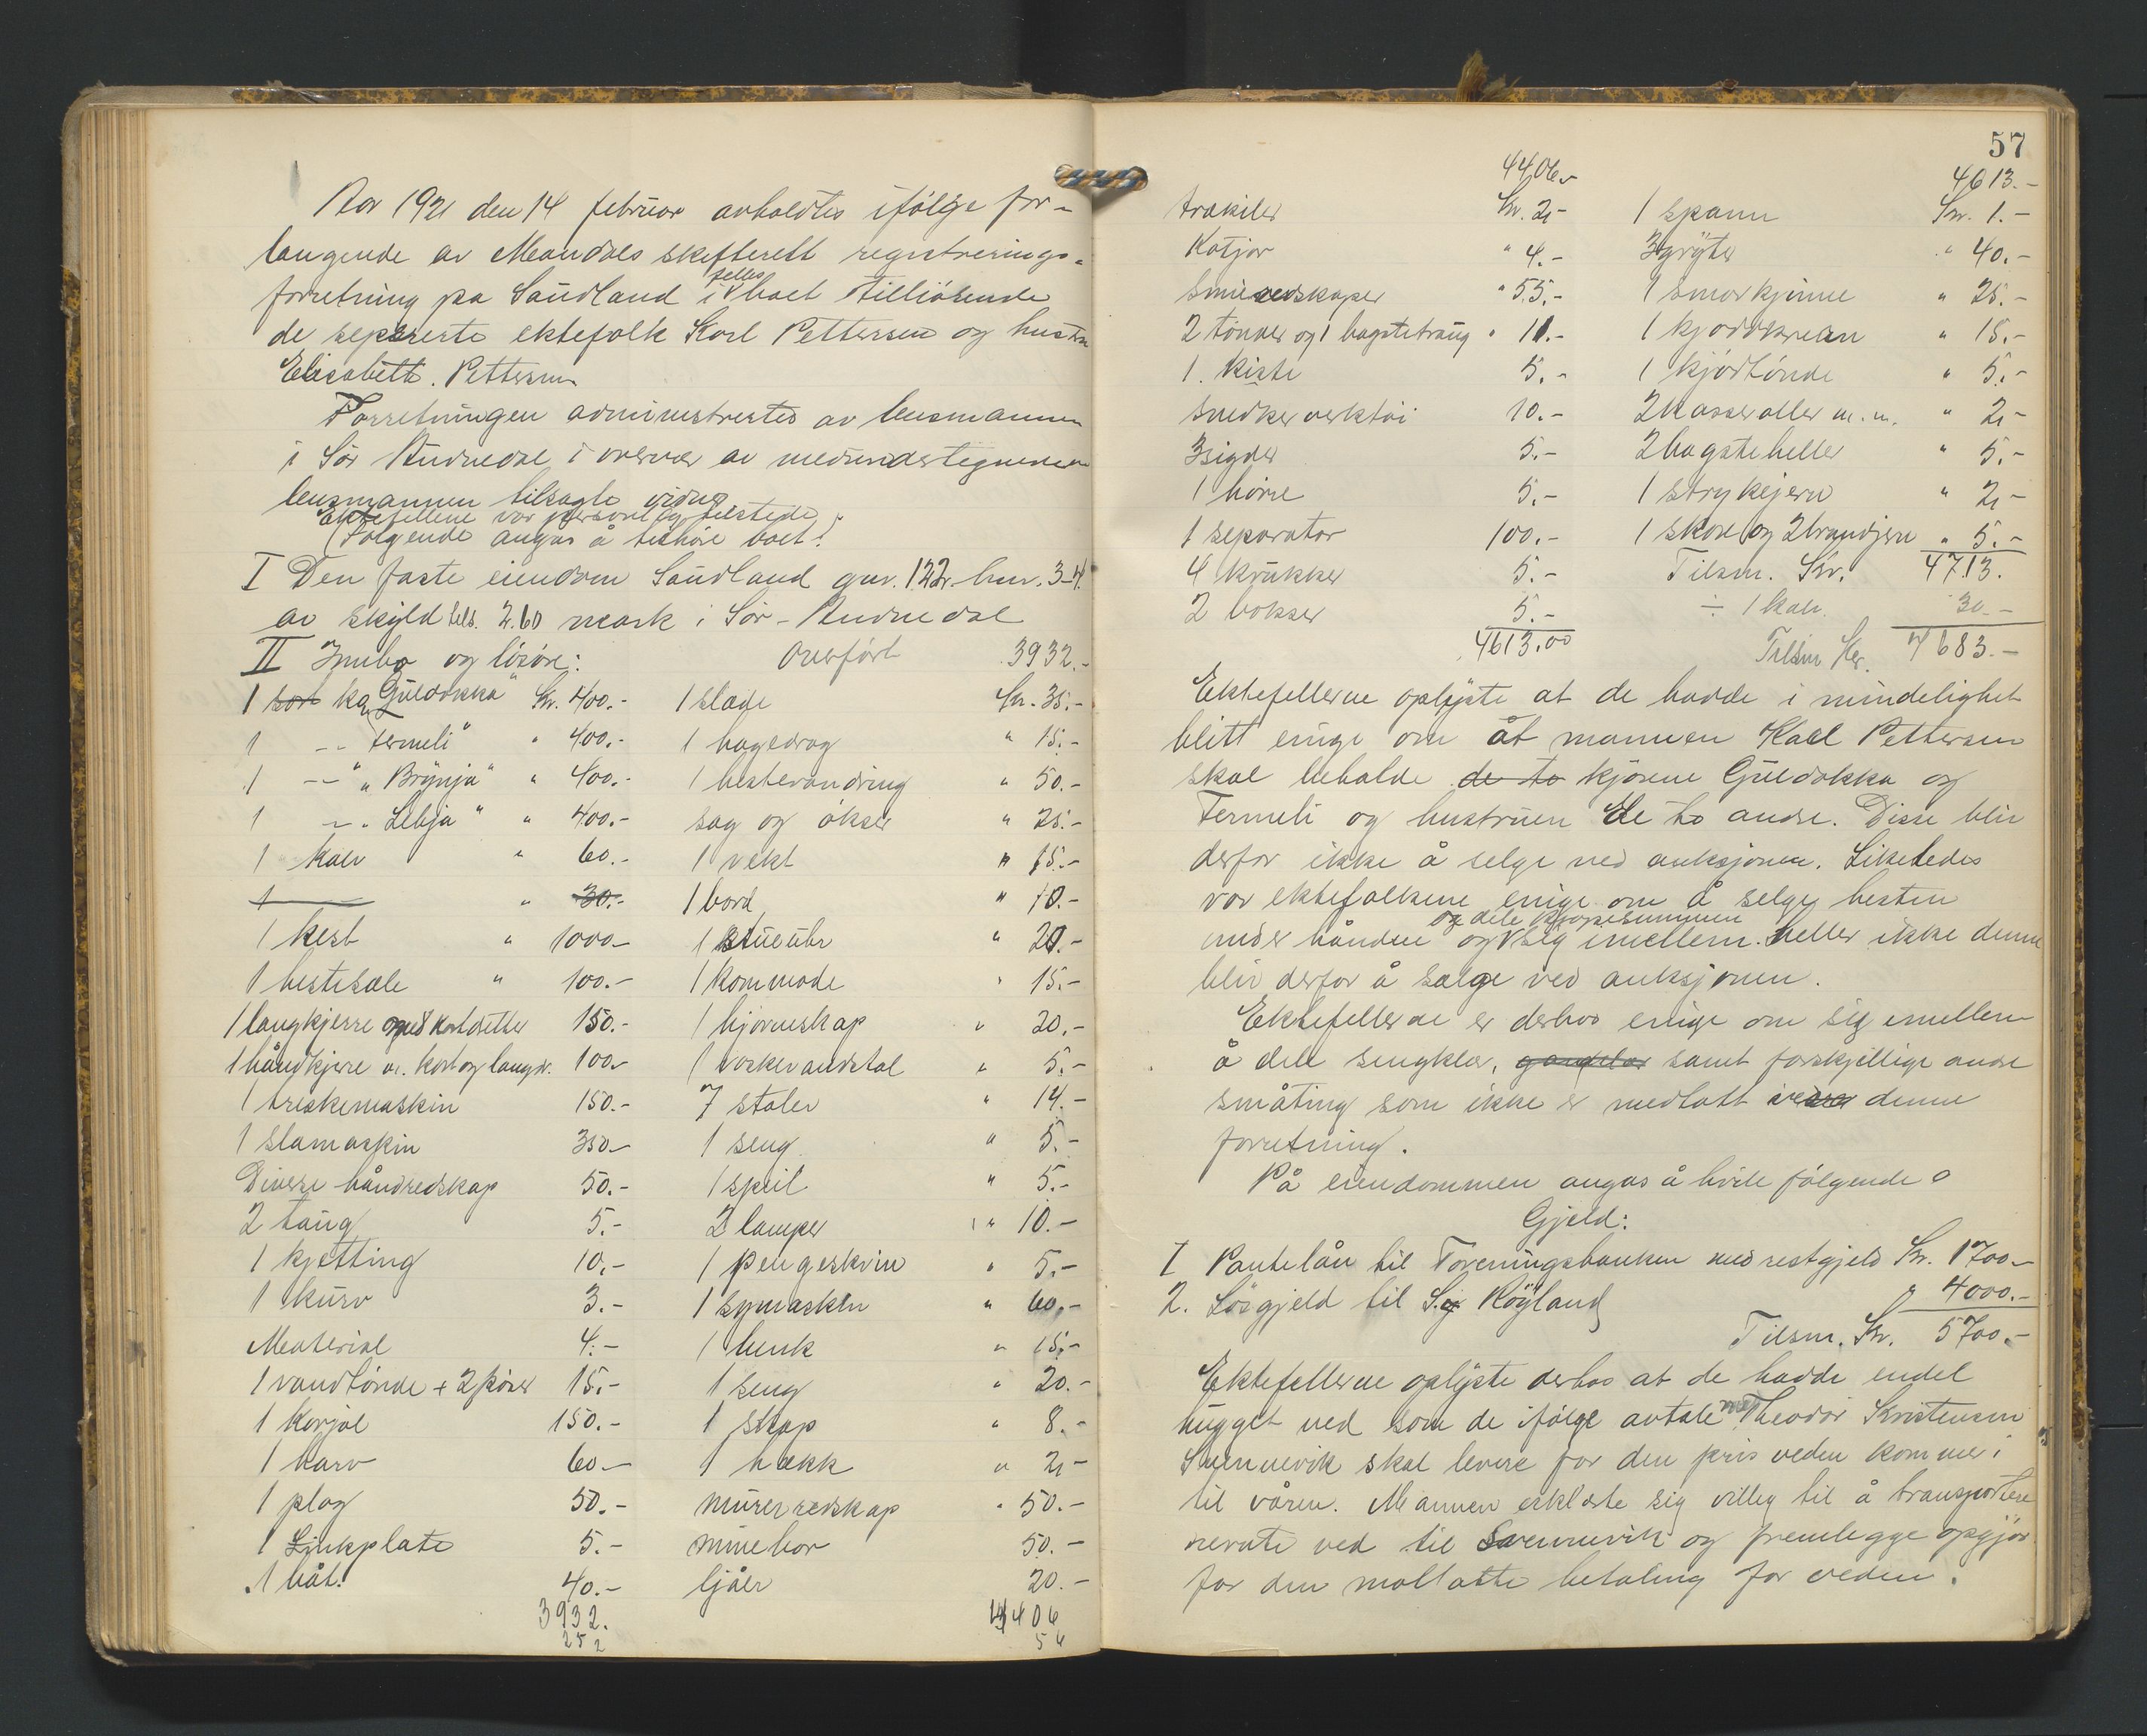 Aar 1921 den 14 februar avholdtes ifölge for-
langende av Mandals skifterett registrerings-
forretning pa Saudland i felles boet tilhörende
de separerte ektefolk Karl Pettersen og hustru
Elisabeth Pettersen
Forretningen administrertes av lensmannen
i Sör Audnedal i overvær av medundertegnede av
lensmannen tilsagte vidner
Ektefellene var personlig tilstede.
Følgende angas å tilhöre boet:
I Den faste eiendom Saudland gnr. 122 bnr. 3-4
av skyld tils. 2.60 mark i Sör-Audnedal
II Innbo og lösöre:
1 ku "Guldokka" Kr. 400.-
1 -- "Fermeli" " 400.-
1 -- "Brynja" " 400.-
1 -- "Lilja" " 400.-
1 kalv " 60.-
1 " 30.-
1 hest " 1000.-
1 hestesæle " 100.-
1 langkjerre 150.-
1 håndkjerre m. kort og langdr. 100.-
1 treskemaskin 150.-
1 slamaskin 350.-
Diverse håndredskap 50.-
2 taug 5.-
1 kjetting 10.-
1 kurv 3.-
Material 4.-
1 vandtönde + 2 15.-
1 Karjol 150.-
1 harv 60.-
1 plog 50.-
1 Zinkplate 5.-
1 båt. 40.-
3932.
252
Overfört 3932.-
1 slæde Kr. 35.-
1 bogedrag " 15.-
1 hestevandring " 50.-
sag og ökser " 25.-
1 vekt " 15.-
1 bord " 10.-
1 stueuhr " 20.-
1 kommode " 15.-
1 hjörneskap " 20.-
1 vaskevandstol " 5.-
7 stoler " 14.-
1 seng " 5.-
1 speil " 5.-
2 lamper " 10.-
1 pengeskrin " 5.-
1 symaskin " 60.-
1 benk " 15.-
1 seng " 20.-
1 skap " 8.-
1 hekk " 2.-
murerredskap " 50.-
minebor 50.-
ljåer 20.-
4406
57
4406.-
trækiler Kr. 2.-
Kotjor " 4.-
Smieredskaper " 55.-
2 tönner og 1 bagstetraug " 11.-
1 kiste 5.-
Snedkerverktöi 10.-
3 sigder 5.-
1 hövre 5.-
1 separator 100.-
4 krukker 5.-
2 bokser 5.-
4613.00
4613.-
1 spann Kr. 1.-
3 gryter " 40.-
1 smörkjinne " 25.-
1 " 15.-
1 kjödtönde " 5.-
2 kasseroller m.m. " 2.-
2 bagsteheller " 5.-
1 strykejern " 2.-
1 skoe og 2 brandjern " 5.-
Tilsm. Kr. 4713.
÷ 1 kalv. 30.-
Tilsm Kr. 4683.-
Ektefellerne oplyste at de hadde i mindelighet
blitt enige om åt mannen Karl Pettersen
skal beholde de to kjörene Guldokka og
Fermeli og hustruen de to andre. Disse blir
derfor ikke å selge ved auksjonen. Likeledes
var ektefolkene enige om å selge hesten
under hånden og og dele kjöpesummen sig imellem. Heller ikke denne
blir derfor å sælge ved auksjonen.
Ektefellerne er derhos enige om sig emellem
å dele sengklær, samt forskjellige andre
småting som ikke er medtatt denne
forretning.
På eiendommen angas å hvile fölgende
Gjeld:
1 Pantelån til Foreningsbanken med restgjeld Kr. 1700.-
2. Lösgjeld til Sig Röyland " 4000.-
Tilsm. Kr. 5700.-
Ektefellerne oplyste derhos at de hadde endel
hugget ved som de ifölge avtale med Theodor Kristensen
Svennevik skal levere for den pris veden kommer i
til våren. Mannen erklærte sig villig til å transportere
nevnte ved til Svennevik og fremlegge opgjör
for den mottatte betaling for veden.